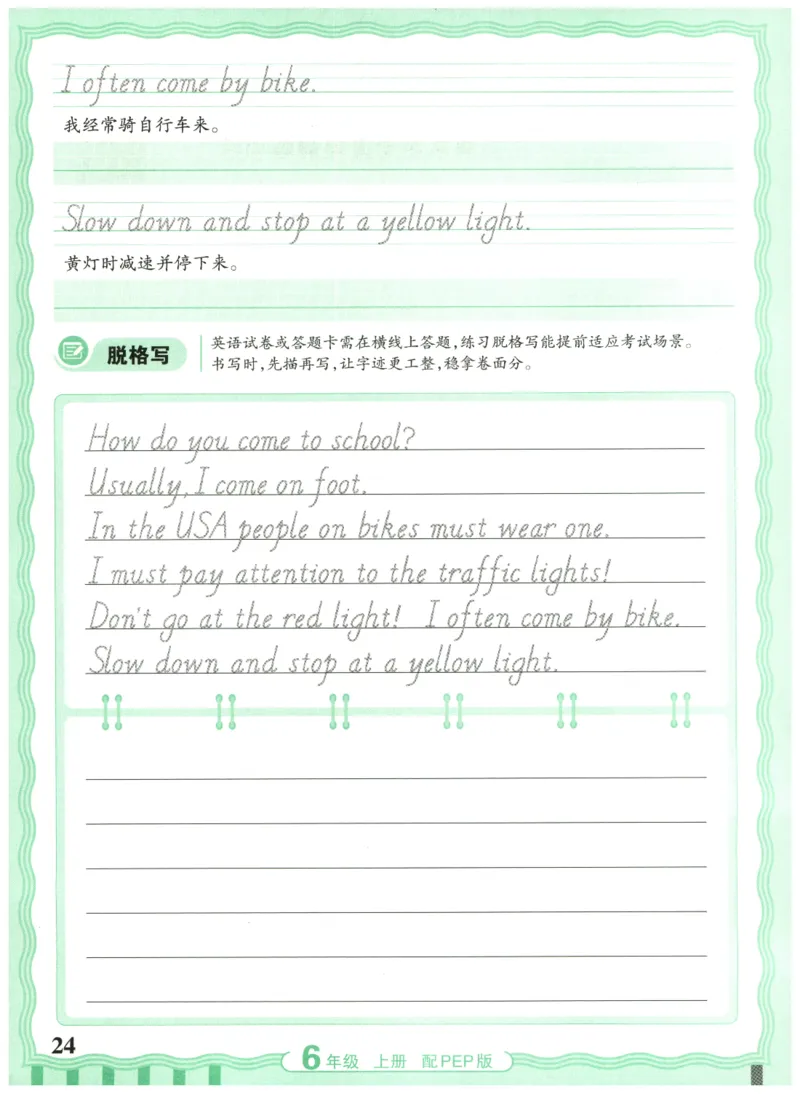 I often come by bike.
我经常骑自行车来。
Slow down and stop at a yellow light.
黄灯时减速并停下来。
脱格写
英语试卷或答题卡需在横线上答题,练习脱格写能提前适应考试场景。
书写时,先描再写,让字迹更工整,稳拿卷面分。
How do you come to school?
Usually, I come on foot.
In the USA people on bikes must wear one.
I must pay attention to the traffic lights!
Don't go at the red light! I often come by bike.
Slow down and stop at a yellow light.
24
6年级 上册 配PEP版